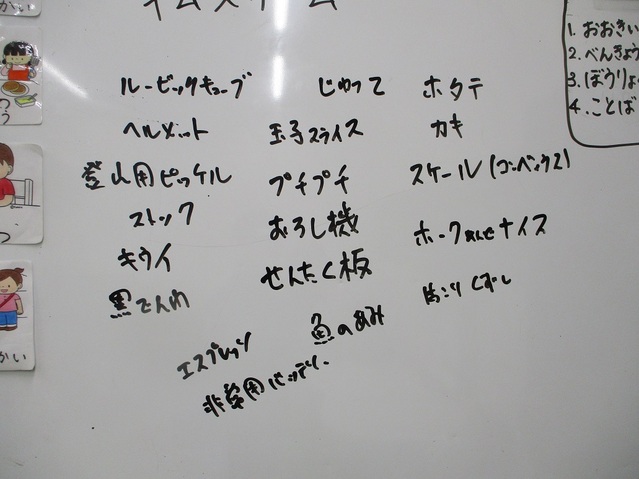 ルービックキューブ
ヘルメット
登山用ピッケル
ストック
キウイ
黒でんわ
エスプレッソ
非常用バッテリー
じゅって
玉子スライス
プチプチ
おろし機
せんたく板
魚のあみ
ホタテ
カキ
スケール(コンベックス)
ホーク
ナイス
1. おおきい
2. べんきょう
3. ぼうりょ
4. ことば
かい